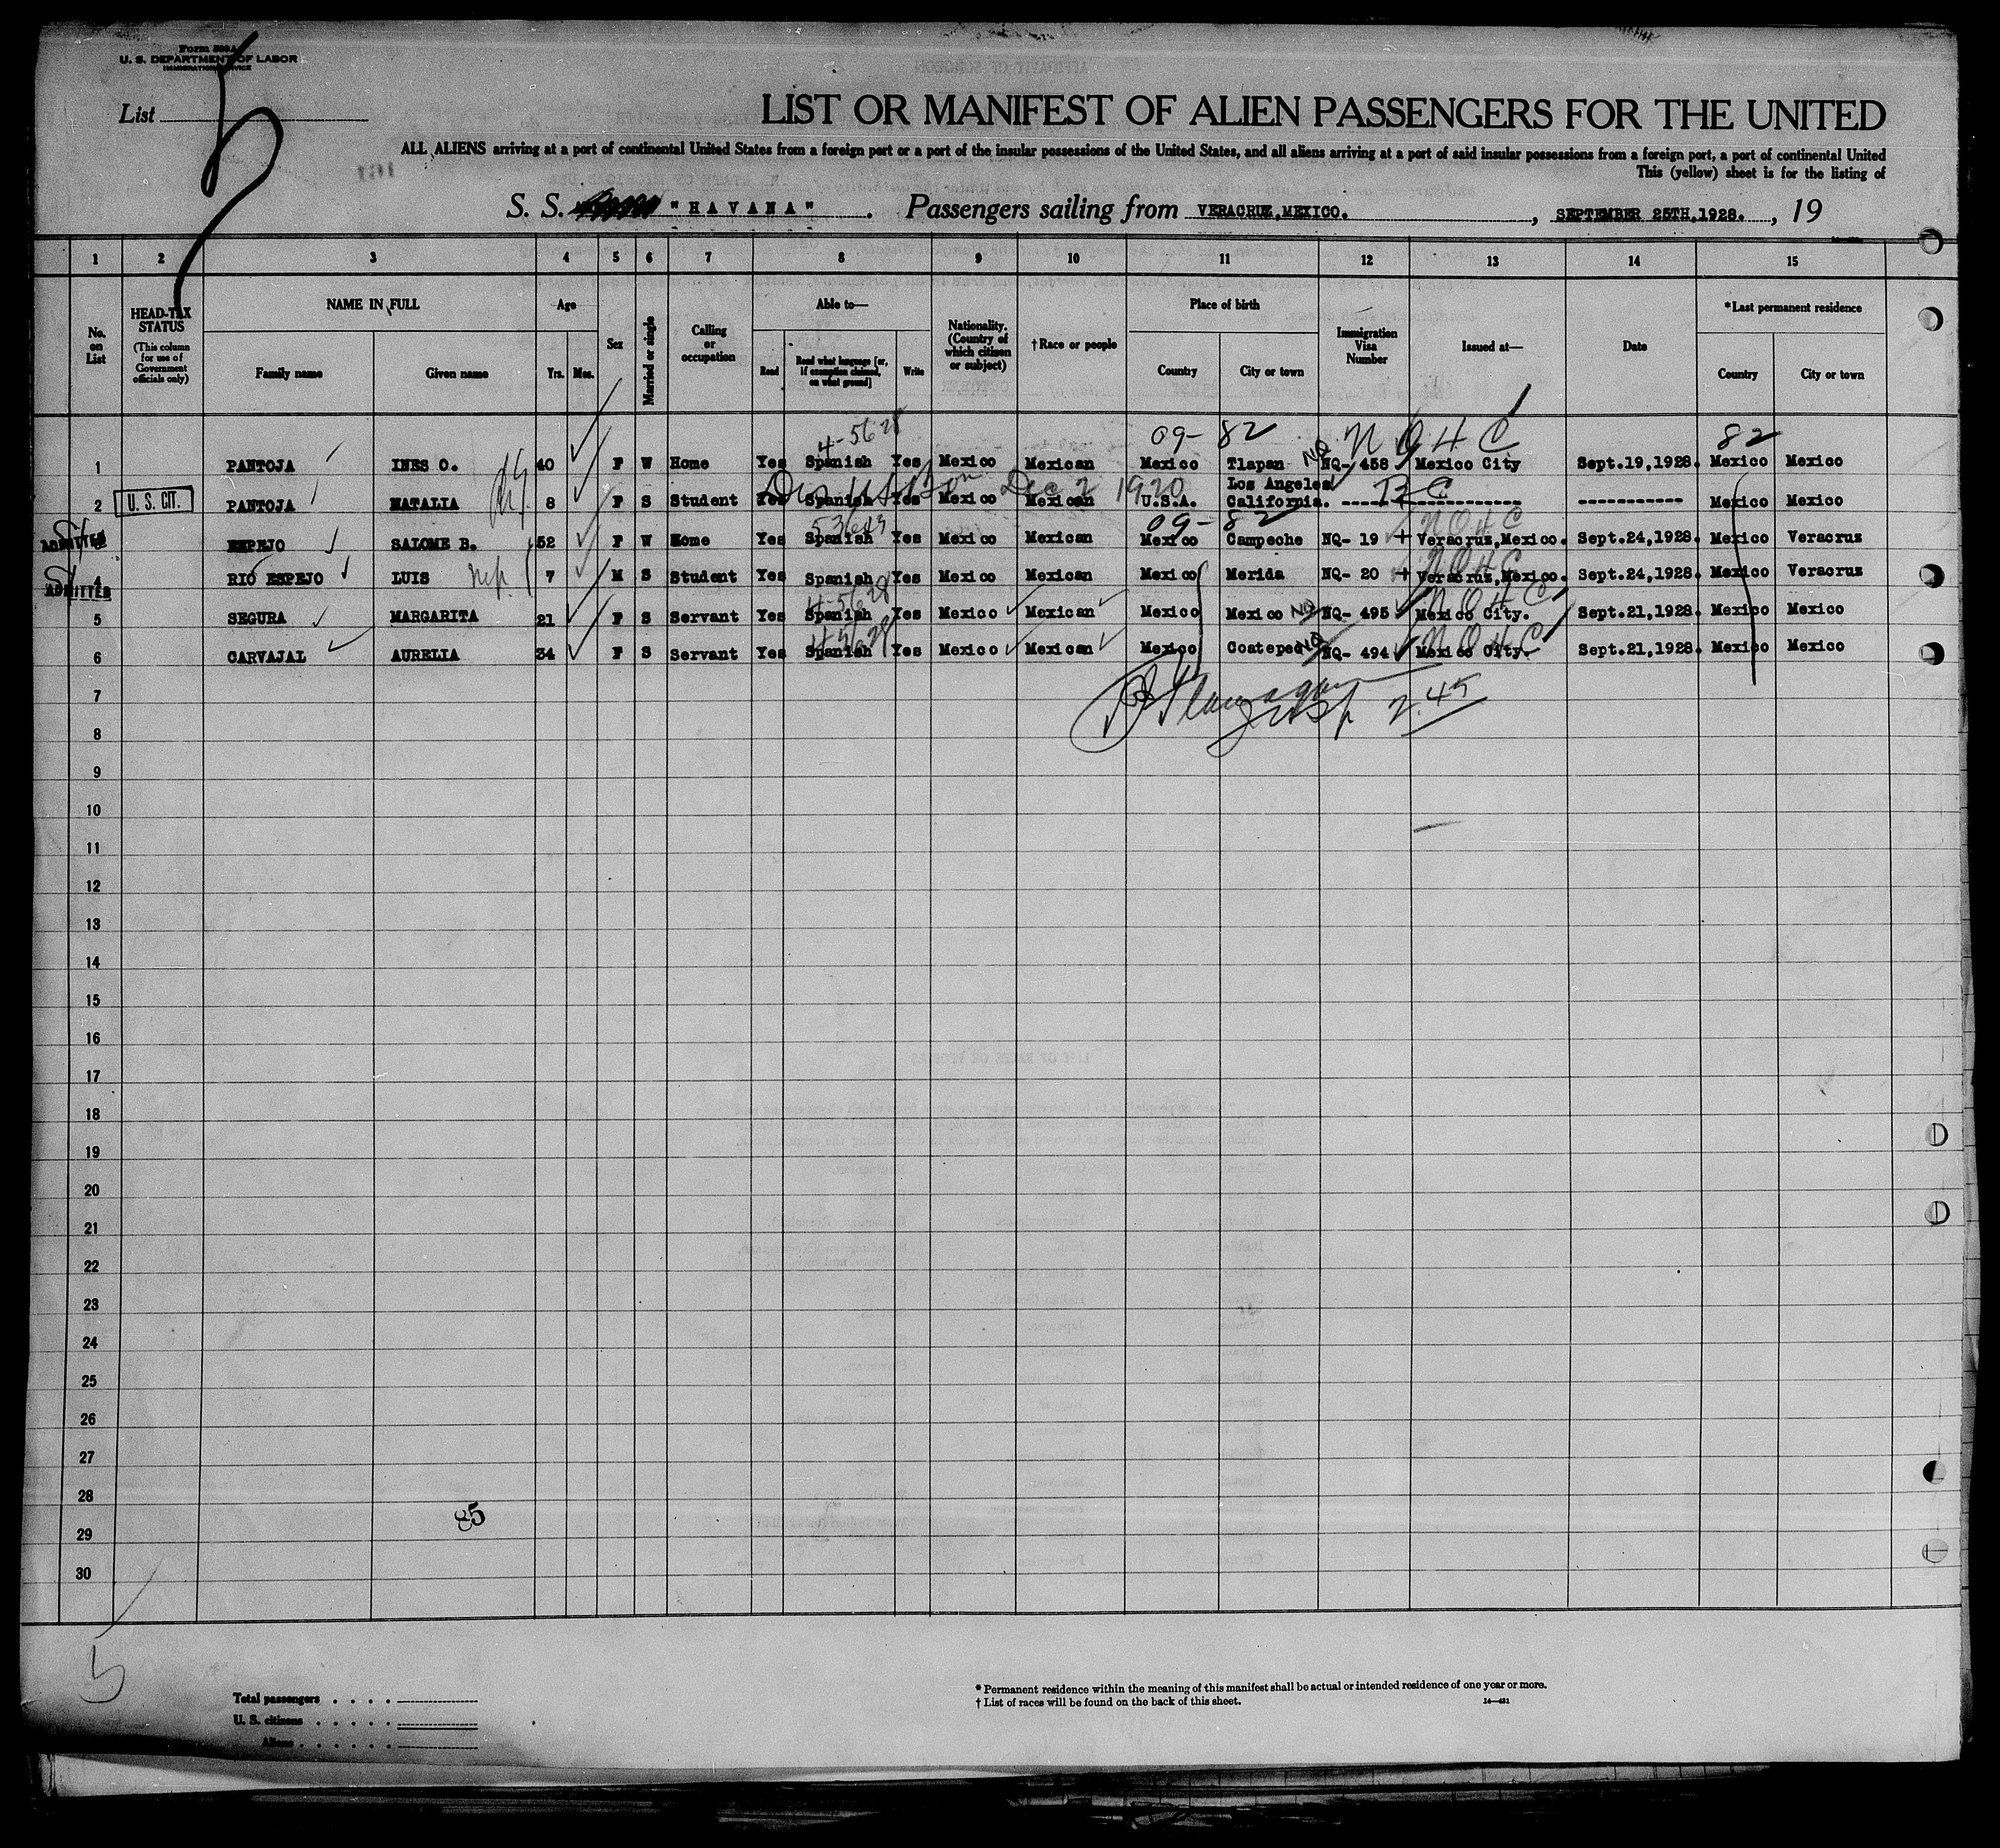 Form 500 A
U. S. DEPARTMENT OF LABOR
IMMIGRATION SERVICE
List 5
LIST OR MANIFEST OF ALIEN PASSENGERS FOR THE UNITED
ALL ALIENS arriving at a port of continental United States from a foreign port or a port of the insular possessions of the United States, and all aliens arriving at a port of said insular possessions from a foreign port, a port of continental United
This (yellow) sheet is for the listing of
S. S. "HAVANA" . Passengers sailing from VERACRUZ,MEXICO. , SEPTEMBER 25TH,1928. , 19
1 2 3 4 5 6 7 8 9 10 11 12 13 14 15
No. on List
HEAD-TAX STATUS
(This column for use of Government officials only)
NAME IN FULL
Family name Given name
Age
Yrs. Mos.
Sex
Married or single
Calling or occupation
Able to—
Read
Read what language [or, if exemption claimed, on what ground]
Write
Nationality. (Country of which citizen or subject)
† Race or people
Place of birth
Country City or town
Immigration Visa Number
Issued at—
Date
* Last permanent residence
Country City or town
4-5628 09-82 NQHC 82
1 PANTOJA INES O. 40 F W Home Yes Spanish Yes Mexico Mexican Mexico Tlapan NQ NQ- 458 Mexico City Sept.19,1928. Mexico Mexico
Dec 2 1920 Los Angeles BC
2 U. S. CIT. PANTOJA NATALIA 8 F S Student Yes Spanish Yes Mexico Mexican U.S.A. California. ----------- Mexico Mexico
09-82 NQHC
ADMITTED 3 ESPEJO SALOME B. 52 F W Home Yes Spanish Yes Mexico Mexican Mexico Campeche NQ- 19 Veracruz,Mexico. Sept.24,1928. Mexico Veracruz
NQHC
ADMITTED 4 RIO ESPEJO LUIS 7 M S Student Yes Spanish Yes Mexico Mexican Mexico Merida NQ- 20 Veracruz,Mexico. Sept.24,1928. Mexico Veracruz
4-5628 NQHC
5 SEGURA MARGARITA 21 F S Servant Yes Spanish Yes Mexico Mexican Mexico Mexico NQ NQ- 495 Mexico City. Sept.21,1928. Mexico Mexico
4-5628 NQHC
6 CARVAJAL AURELIA 34 F S Servant Yes Spanish Yes Mexico Mexican Mexico Coatepec NQ NQ- 494 Mexico City. Sept.21,1928. Mexico Mexico
7
Insp 2.45
8
9
10
11
12
13
14
15
16
17
18
19
20
21
22
23
24
25
26
27
28
85
29
30
5
Total passengers . . . .
U. S. citizens . . . . .
Aliens . . . . . .
* Permanent residence within the meaning of this manifest shall be actual or intended residence of one year or more.
† List of races will be found on the back of this sheet.
14—421